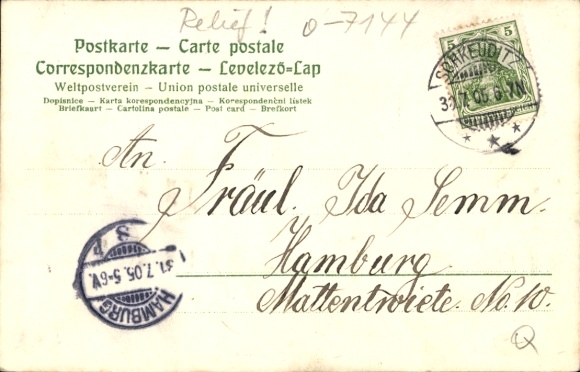 Relief! 0-7144
Postkarte – Carte postale
Correspondenzkarte – Levelező-Lap
Weltpostverein – Union postale universelle
Dopisnice – Karta korespondencyjna – Korespondenční lístek
Briefkaart – Cartolina postale – Post card – Brefkort
5 5
SCHKEUDITZ
7.05.6-7N.
An.
Fräul. Ida Semm.
Hamburg
Mattentwiete. No. 10.
HAMBURG
31.7.05.5-6V.